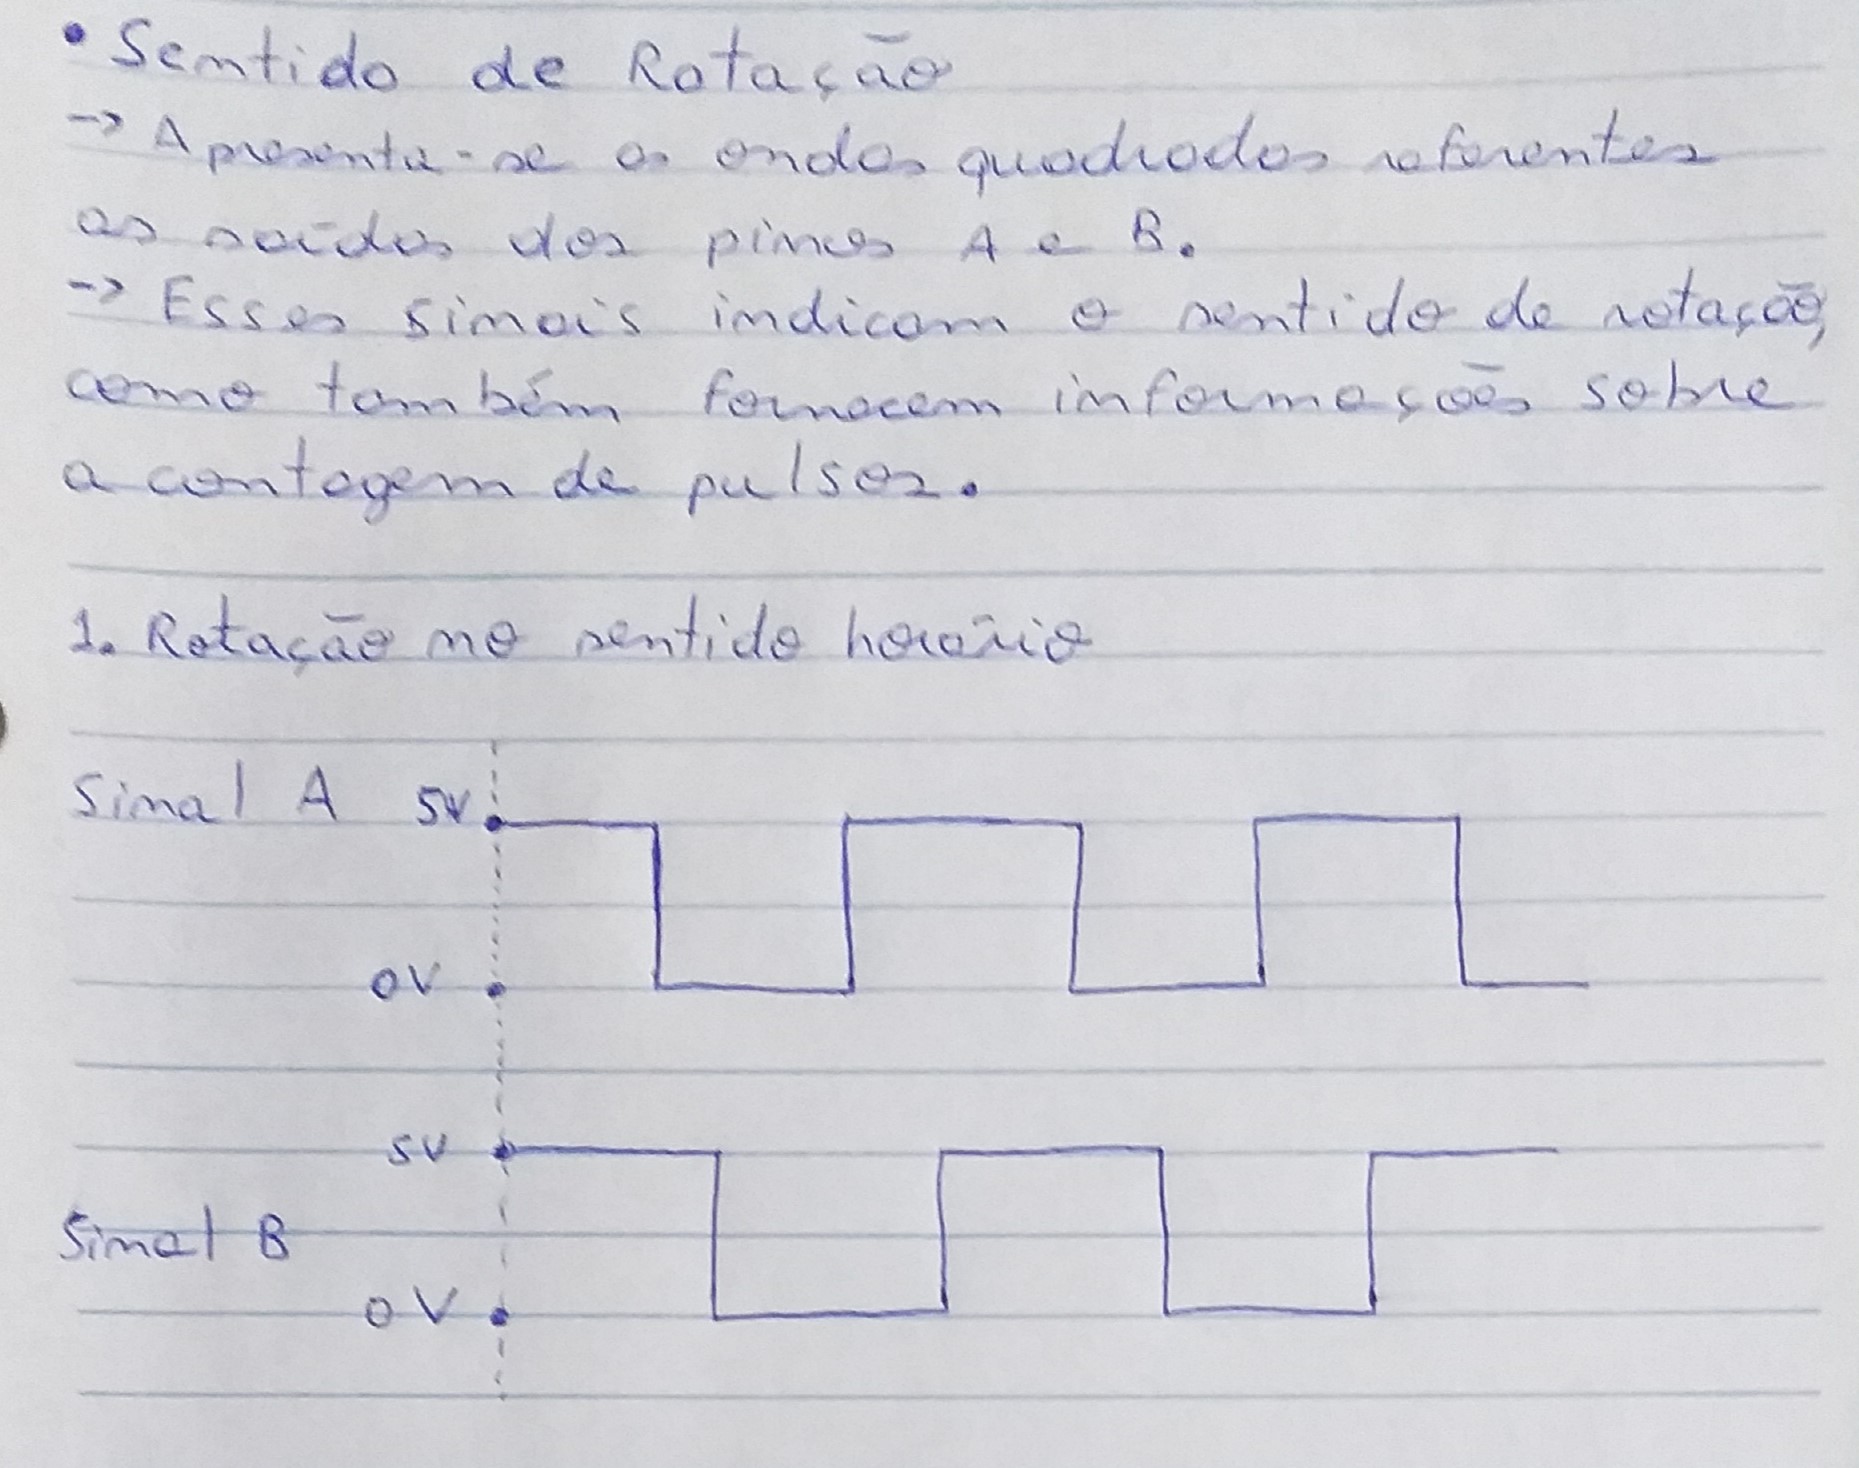 • Sentido de Rotação
-> Apresenta-se as ondas quadradas referentes
as saídas dos pinos A e B.
-> Esses sinais indicam o sentido de rotação,
como também fornecem informações sobre
a contagem de pulsos.
1. Rotação no sentido horário
Sinal A 5V
0V
5V
Sinal B
0V